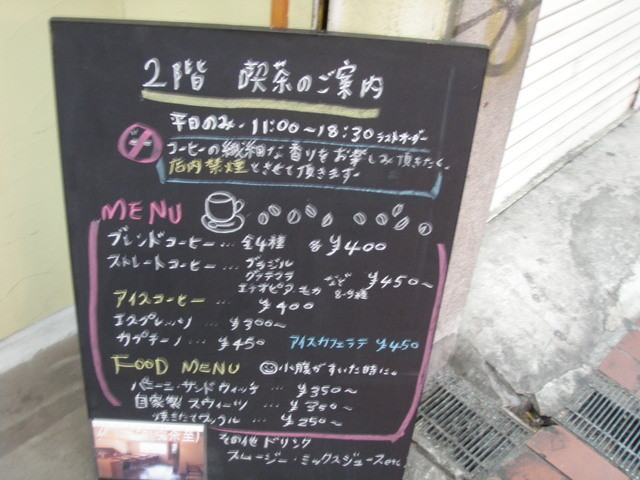 2階 喫茶のご案内
平日のみ・11:00～18:30 ラストオーダー
コーヒーの繊細な香りをお楽しみ頂きたく、
店内禁煙とさせて頂きます。
MENU
ブレンドコーヒー… 全4種 各¥400
ストレートコーヒー … ブラジル
グァテマラ など ¥450～
エチオピアモカ 8-9種
アイスコーヒー … ¥400
エスプレッソ … ¥300～
カプチーノ … ¥450 アイスカフェラテ ¥450
FOOD MENU 小腹がすいた時に。
パニーニ・サンドウィッチ … ¥350～
自家製 スウィーツ … ¥350～
焼きたてワッフル … ¥250～
その他 ドリンク
スムージー・ミックスジュース etc